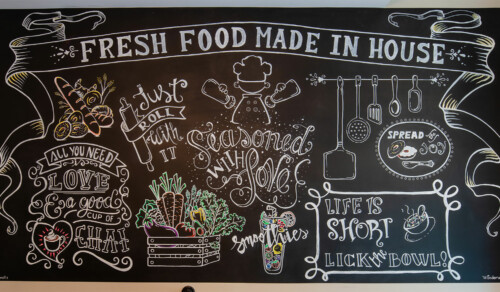 FRESH FOOD MADE IN HOUSE
Just
ROLL
With
IT
Seasoned
WITH
Love
SPREAD
ALL YOU NEED
LOVE
& a good
CUP OF
CHAI
smoothies
LIFE IS
SHORT
LICK the BOWL!